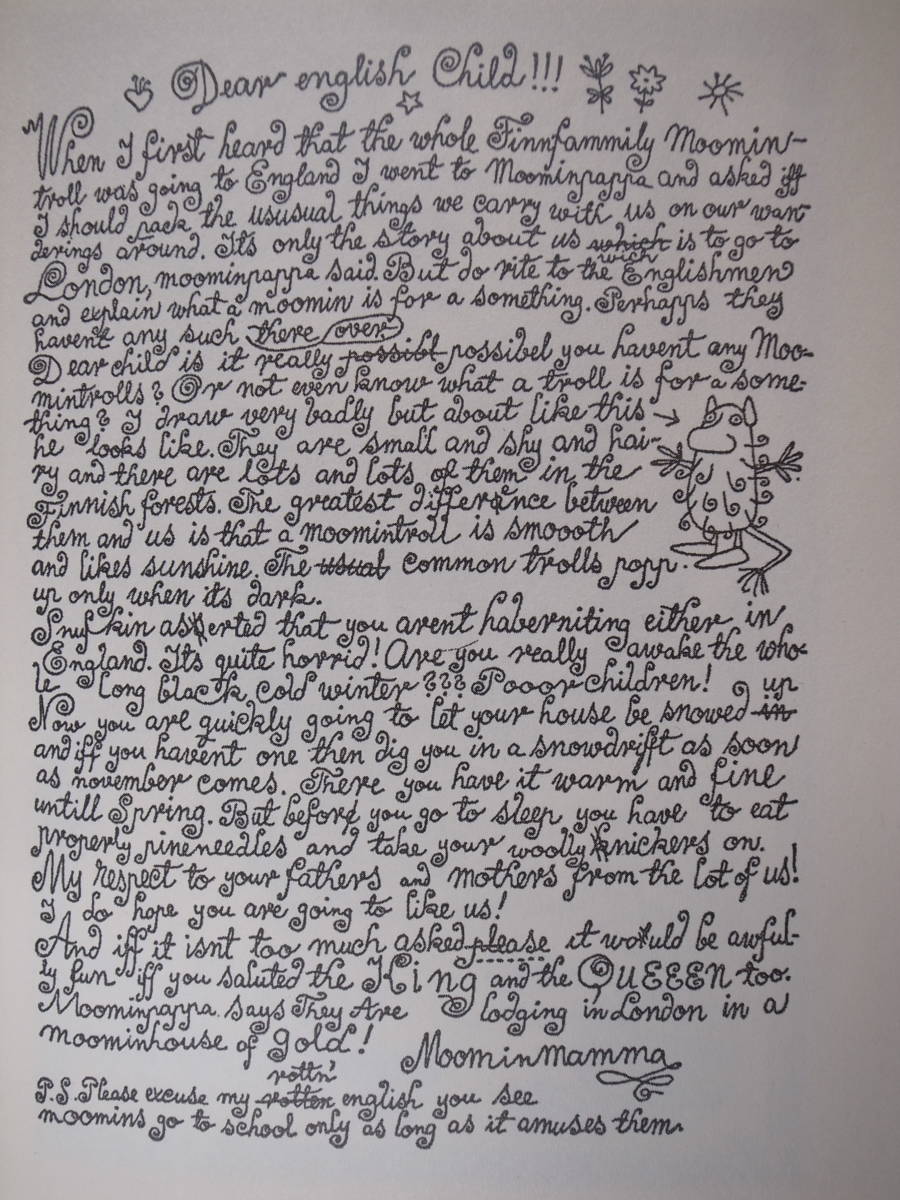 Dear english Child!!!
When I first heard that the whole Finnfammily Moomin-
troll was going to England I went to Moominpappa and asked iff
I should pack the ususual things we carry with us on our wan-
derings around. Its only the story about us which wich is to go to
London, moominpappa said. But do rite to the Englishmen
and explain what a moomin is for a something. Perhapps they
havent any such there over
Dear child is it really possibl possibel you havent any Moo-
mintrolls? Or not even know what a troll is for a some-
thing? I draw very badly but about like this →
he looks like. They are small and shy and hai-
ry and there are lots and lots of them in the
Finnish forests. The greatest difference between
them and us is that a moomintroll is smoooth
and likes sunshine. The usual common trolls popp
up only when its dark.
Snufkin asserted that you arent haberniting either in
England. Its quite horrid! Are you really awake the who-
le long black cold winter??? Pooor children!
Now you are quickly going to let your house be snowed in up
and iff you havent one then dig you in a snowdrifft as soon
as november comes. There you have it warm and fine
untill Spring. But before you go to sleep you have to eat
properly pineneedles and take your woolly knickers on.
My respect to your fathers and mothers from the lot of us!
I do hope you are going to like us!
And iff it isnt too much asked please it would be awful-
ly fun iff you saluted the King and the QuEEEN too.
Moominpappa says They Are lodging in London in a
moominhouse of gold!
Moominmamma
P.S. Please excuse my rotten rottn' english you see
moomins go to school only as long as it amuses them.